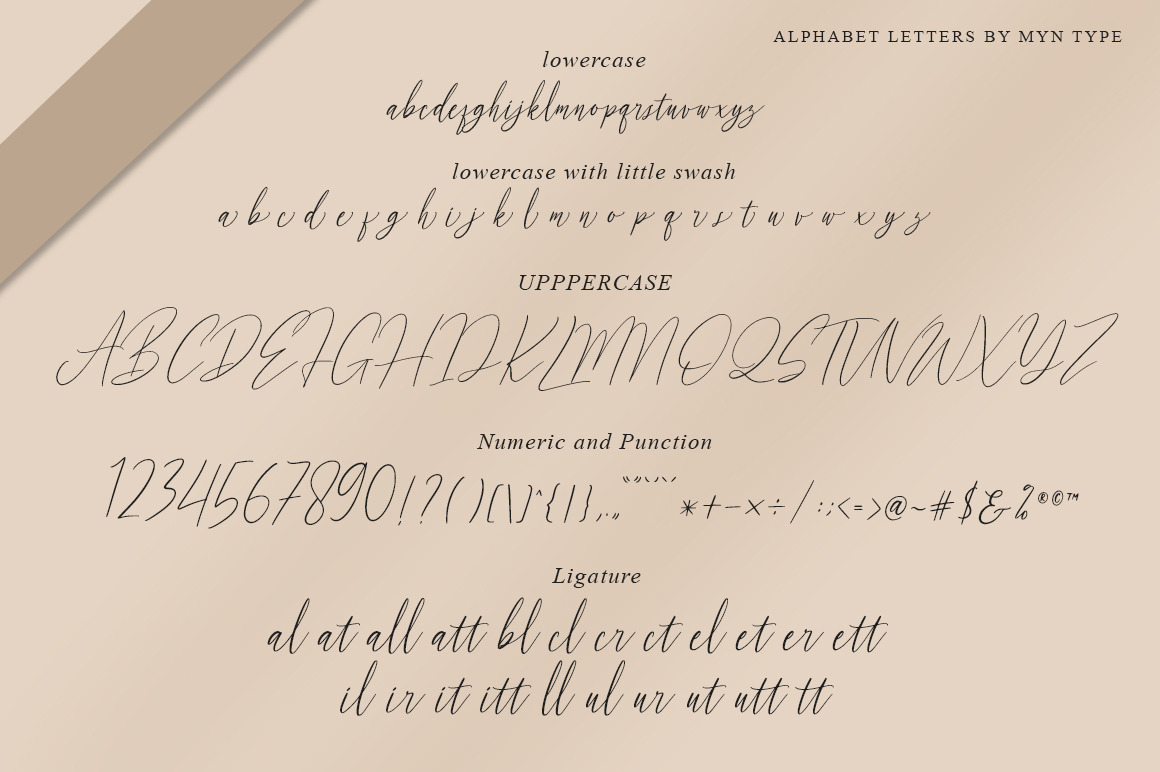 ALPHABET LETTERS BY MYN TYPE
lowercase
abcdefghijklmnopqrstuvwxyz
lowercase with little swash
a b c d e f g h i j k l m n o p q r s t u v w x y z
UPPPERCASE
ABCDEFGHIJKLMNOQSTUVWXYZ
Numeric and Punction
1234567890!?()[\]^{|},.„“”‘’*+−×÷/:;<=>@~#$&%®©™
Ligature
al at all att bl cl cr ct el et er ett
il ir it itt ll ul ur ut utt tt